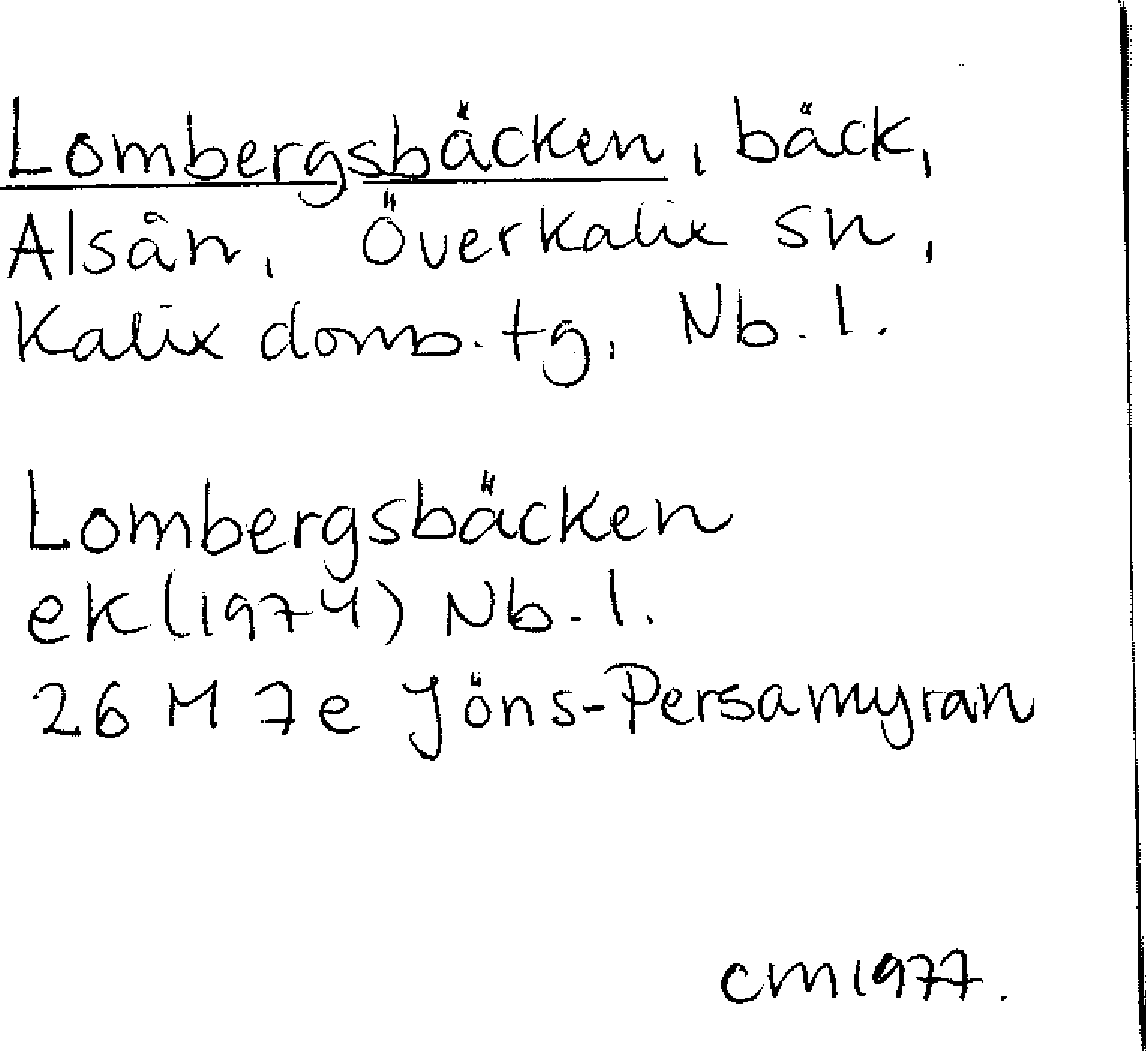 Lombergsbäcken, bäck,
Alsån, Överkalix sn,
Kalix doms.tg, Nb.l.
Lombergsbäcken
ek(1974) Nb.l.
26 M 7e Jöns-Persamyran
CM1977.